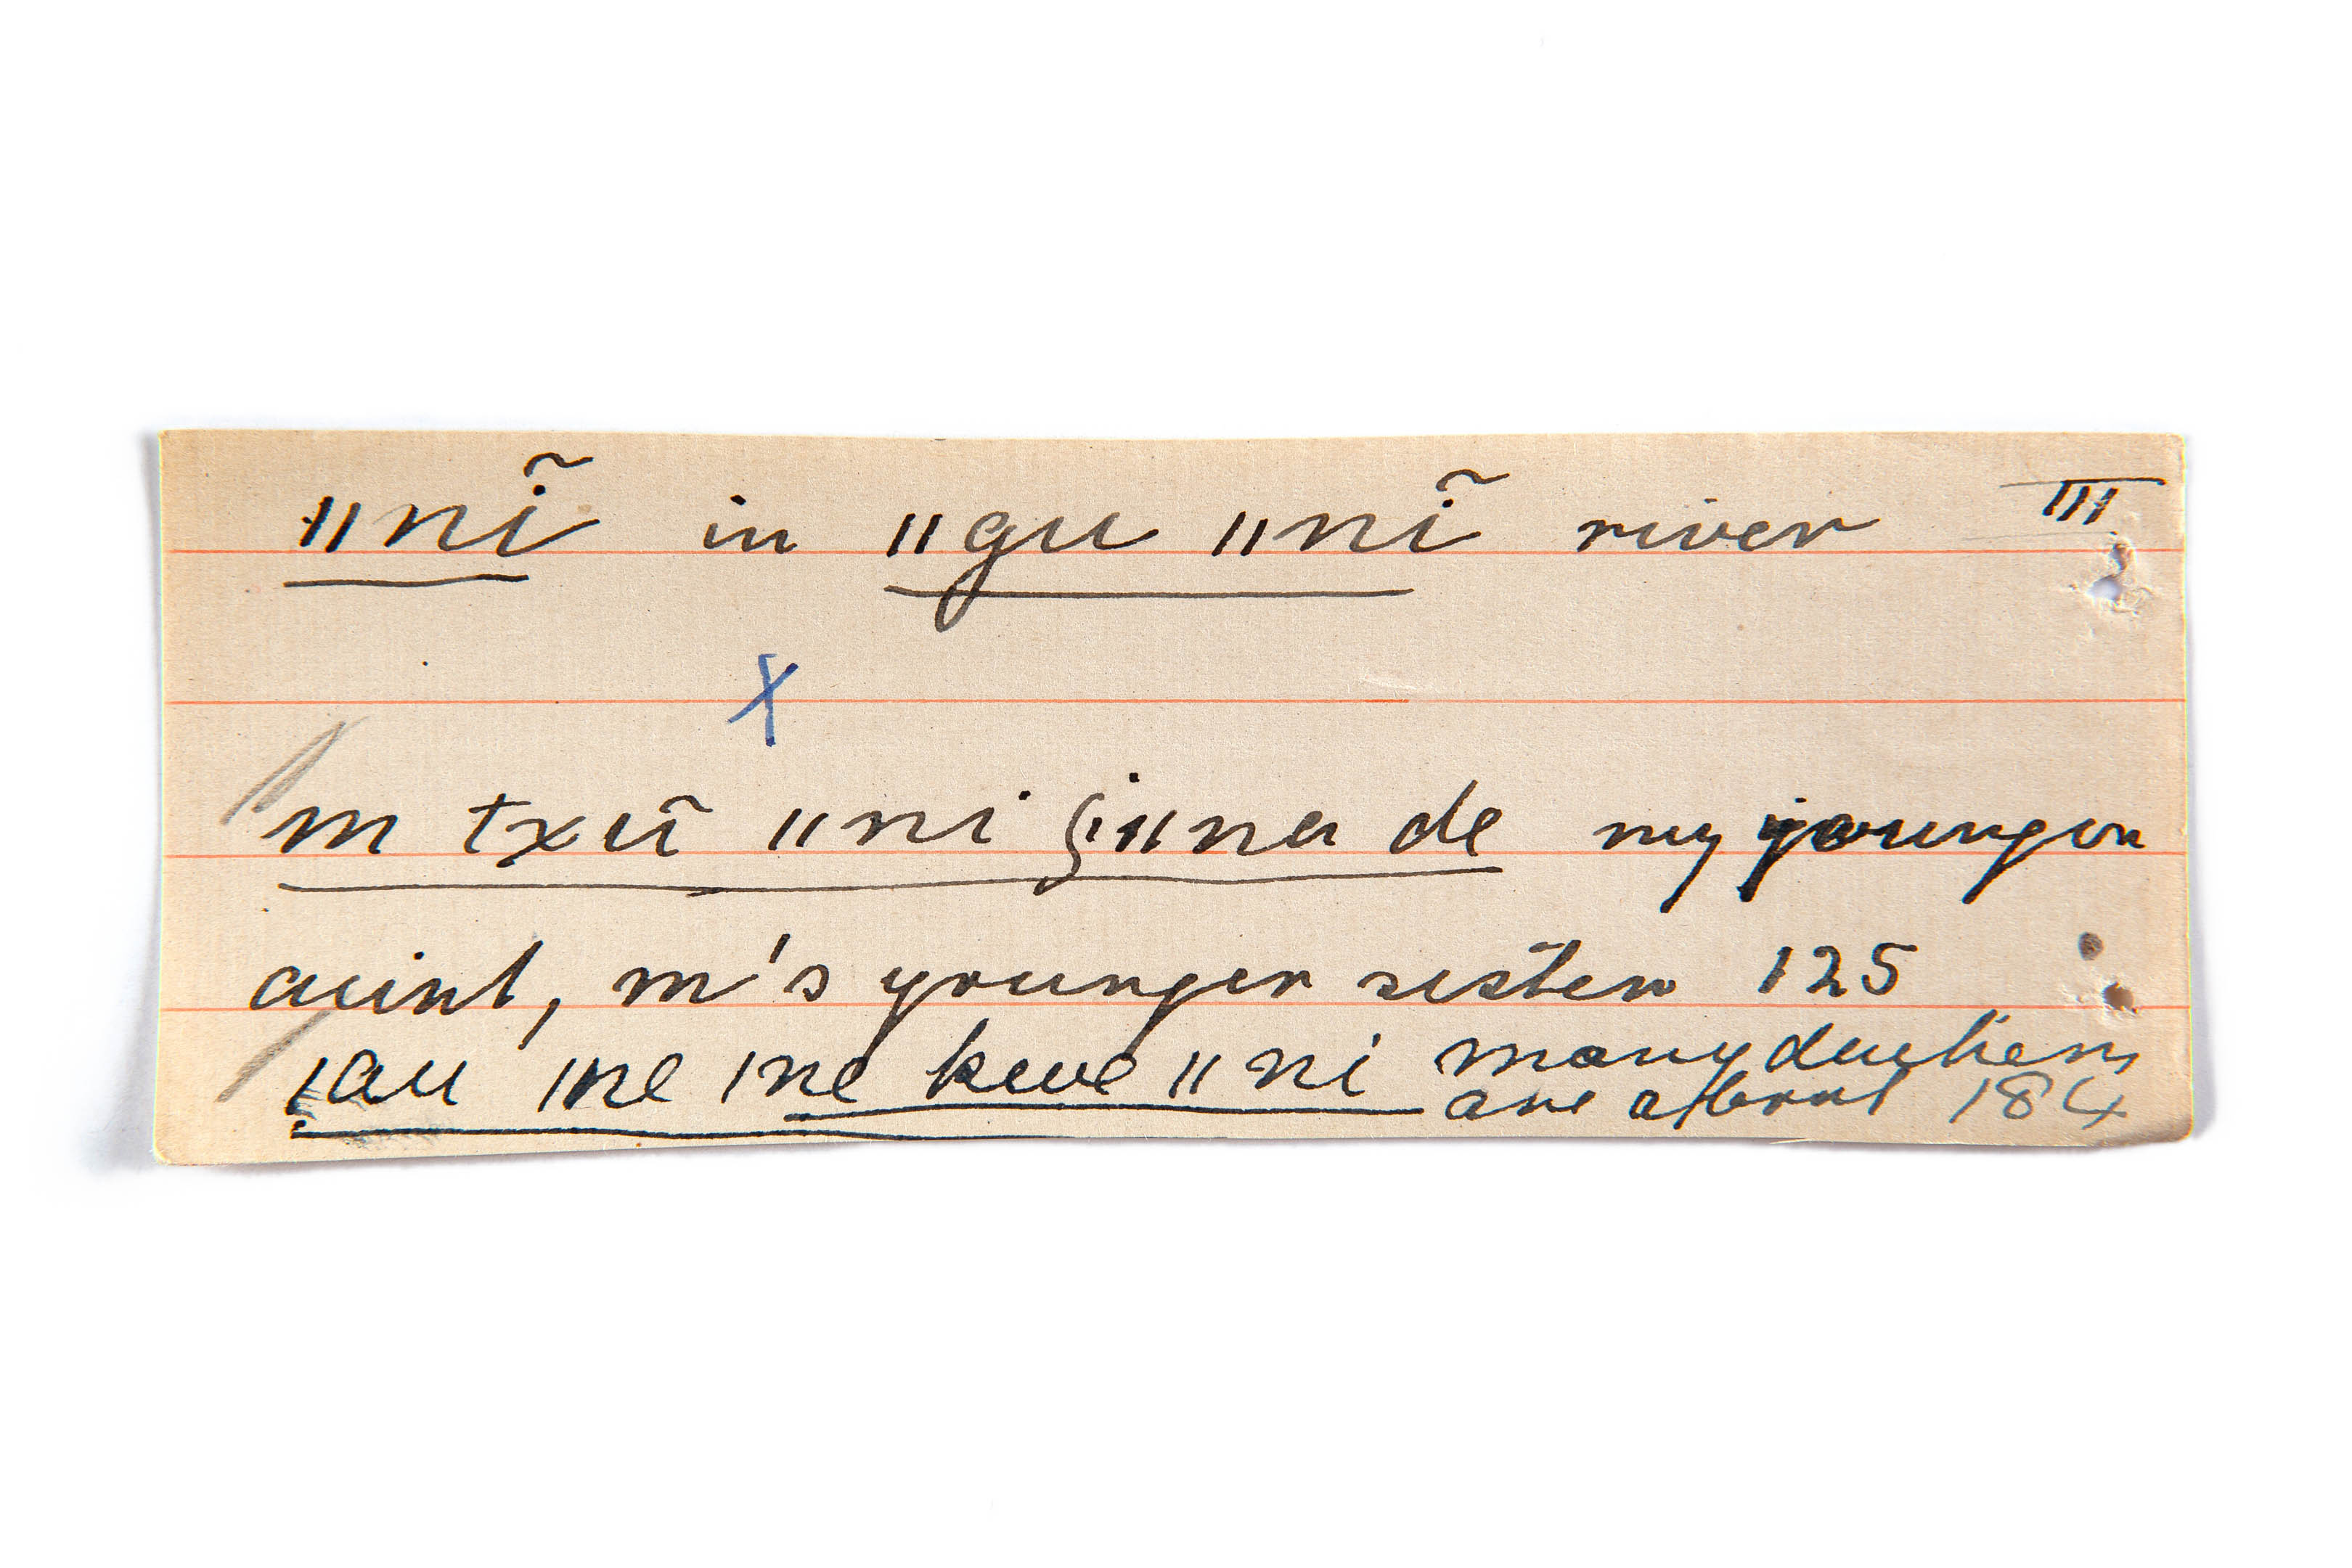 ǁnĩ in ǁgu ǁnĩ river III
X
m txũ ǁni ǁna de my younger
aunt, m's younger sister 125
ǀau ǀne ǀne kwe ǁni many duchens
are about 184